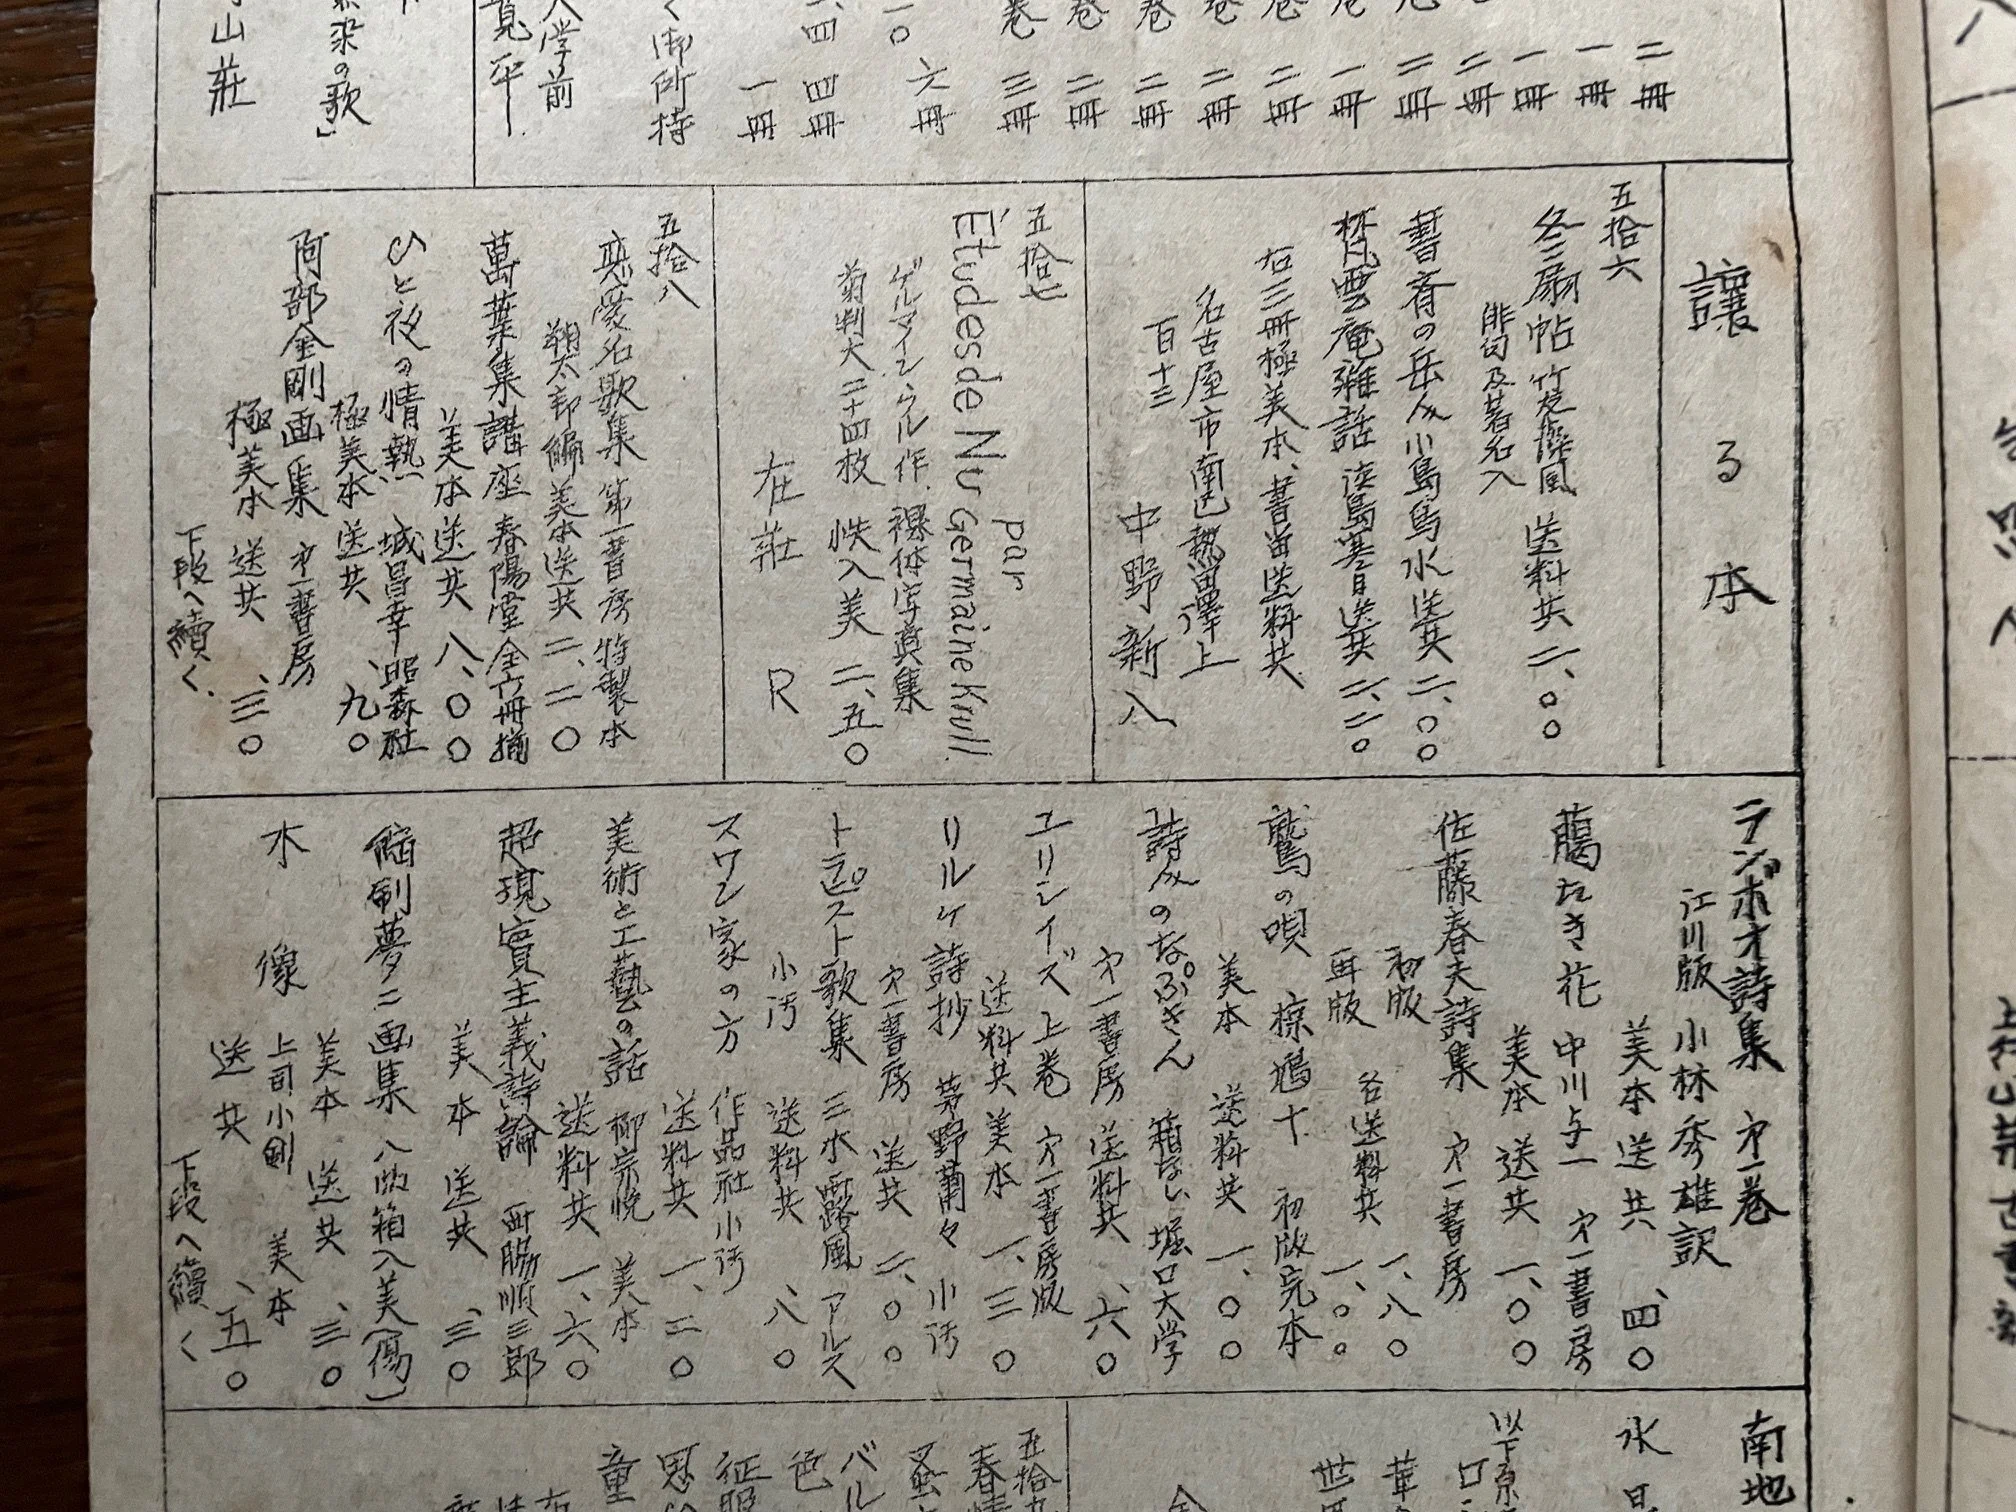 二冊
一冊
一冊
二冊
二冊
一冊
二冊
二冊
二冊
二冊
三冊
六冊
四冊
一冊
く御所持
大学前
の歌」
山荘
讓る本
五拾六
冬扇帖 送料共 二、〇〇
俳句及署名入
書斎の岳人 小島烏水 送共 二、〇〇
梵雲庵雑話 淡島寒月 送共 二、二〇
右三冊極美本、書留送料共
名古屋市南区熱田澤上
百十三
中野新八
五拾七
par
Études de Nu Germaine Krull.
ゲルマインクルル作、裸体写真集
菊判大二十四枚 帙入美 二、五〇
在荘 R
五拾八
恋愛名歌集 第一書房 特製本
朔太郎編 美本送共 二、二〇
萬葉集講座 春陽堂 全六冊揃
美本送共 八、〇〇
ひと夜の情熱 城昌幸 昭森社
極美本 送共 、九〇
阿部金剛画集 㐧一書房
極美本 送共 、三〇
下段へ續く.
ランボオ詩集 㐧一巻
江川版 小林秀雄訳
美本 送共 、四〇
﨟たき花 中川与一 㐧一書房
美本 送共 一、〇〇
佐藤春夫詩集 㐧一書房
初版 各送料共 一、八〇
再版 一、〇〇
鷲の唄 椋鳩十 初版完本
美本 送料共 一、〇〇
詩人のなぷきん 箱ない 堀口大学
㐧一書房 送料共 、六〇
ユリシイズ 上巻 㐧一書房版
送料共 美本 一、三〇
リルケ詩抄 茅野蕭々 小汚
㐧一書房 送共 二、〇〇
トラピスト歌集 三木露風 アルス
小汚 送料共 、八〇
スワン家の方 作品社 小汚
送料共 一、二〇
美術と工藝の話 柳宗悦 美本
送料共 一、六〇
超現實主義詩論 西脇順三郎
美本 送共 、三〇
縮刷夢二画集 八册箱入美(傷)
美本 送共 、三〇
木像 上司小剣 美本
送共 、五〇
下段へ續く
南地
以下
五拾九
春情
バル
色
征服
童